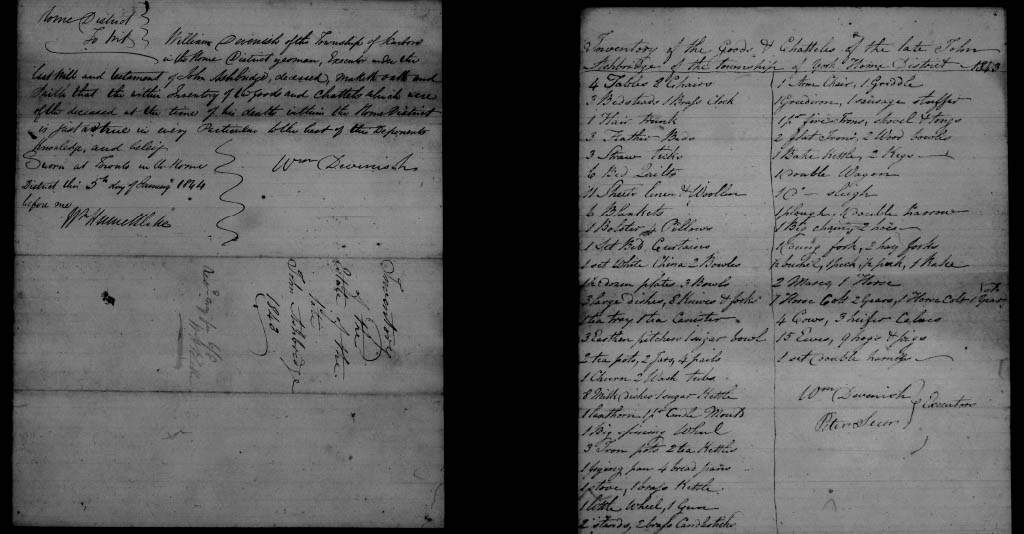 Home District
To Wit
William Devenish of the Township of Scarboro
in the Home District yeoman, Executor under the
last Will and testament of John Ashbridge, deceased, maketh oath and
saith that the within Inventory of the Goods and Chattels which were
of the deceased at the time of his death within the Home District
is just & true in every Particular to the best of the Deponents
knowledge, and belief
Sworn at Toronto in the Home
District this 5th day of January 1844
before me
Wm Devenish
Wm Hume Blake
Inventory
of the
Estate of the
late
John Ashbridge
1843
Inventory of the Goods & Chatteles of the late John
Ashbridge of the township of York Home District 1843
4 Tables 2 Chairs
3 Bedsteads 1 Brass Clock
1 Hair trunk
3 Feather Beds
3 Straw ticks
6 Bed Quilts
11 Sheets linen & Woollen
6 Blankets
1 Bolster 4 Pillows
1 Set Bed Curtains
1 set White China 2 Bowles
1/2 dozen plates 3 Bowls
3 Large dishes, 8 Knives & forks
1 tea tray 1 tea Canister
3 Earthen pitchers 1 sugar bowl
2 tea pots, 2 Jars, 4 pails
1 Churn 2 Wash tubs
8 Milk dishes 1 sugar Kettle
1 lanthorn 1 pr Candle Moulds
1 Big spinning Wheel
3 Iron pots 2 tea Kettles
1 frying pan 4 bread pans
1 stove, 1 brass Kettle
1 little Wheel, 1 Gun
2 stands, 2 brass Candlesticks
1 Arm Chair, 1 Griddle
1 Gridiron, 1 sausage stuffer
1 pr fire Irons, shovel & tongs
2 flat Irons, 2 Wood bowls
1 Bake Kettle, 2 Kegs
1 double Wagon
1 Do sleigh
1 plough, 1 double harrow
1 Big chain, 2 hoes
1 dung fork, 2 hay forks
1/2 bushel, 1 peck, 1/2 peck, 1 Rake
2 Mares, 1 Horse
1 Horse Colt 2 Years, 1 Horse Colt 1 Year
4 Cows, 3 heifer Calves
15 Ewes, 9 hogs & pigs
1 set double harness
Wm Devenish
Peter Secor
Executors